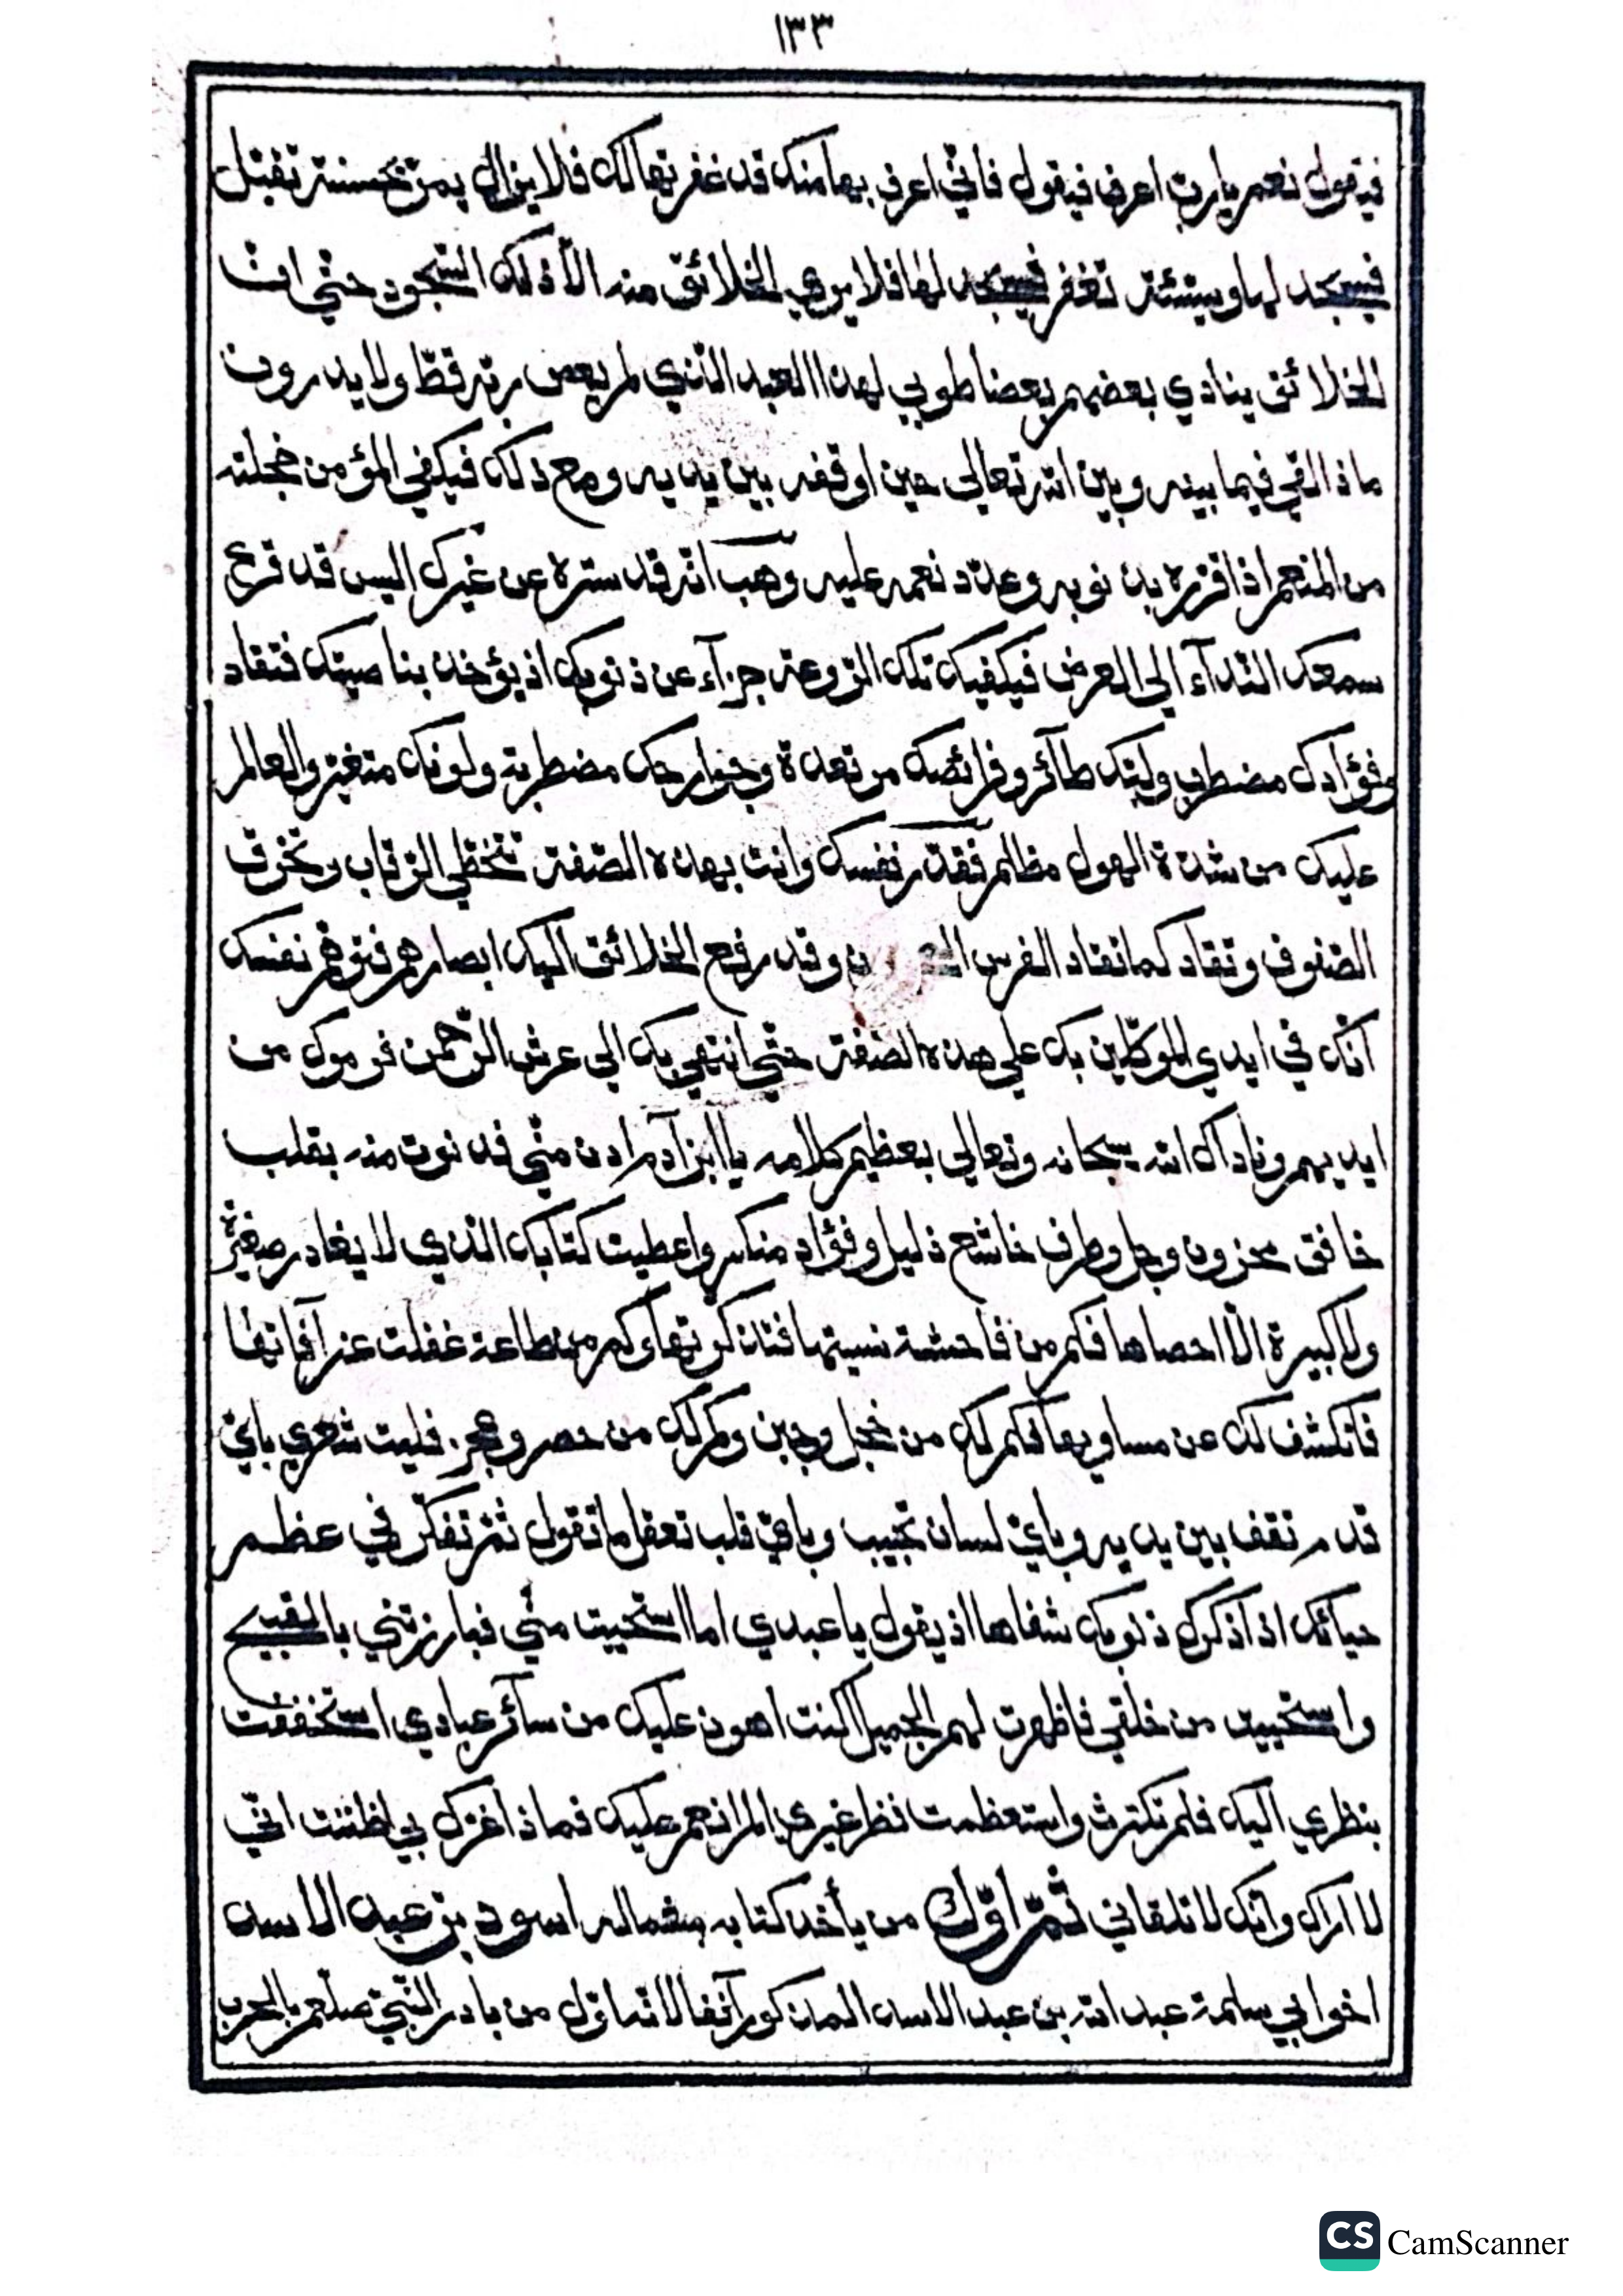 ١٣٣
فيقول نعم يارب اعرف فيقول فانّي اعرف بها منك قد غفرتها لك فلا يزال يمرّ بحسنة تقبل
فيسجد لها وسيّئة تغفر فيسجد لها فلا يري الخلائق منه الّا ذلك السّجود حتّي انّ
الخلائق ينادي بعضهم بعضا طوبي لهذا العبد الّذي لم يعص ربّه قطّ ولا يدرون
ماذا لقي فيما بينه وبين الله تعالي حين اوقفه بين يديه ومع ذلك فيكفي المؤمن خجلته
من المنعم اذا قرّره بذنوبه وعدّد نعمه عليه وهب انّه قد ستره عن غيرك اليس قد قرع
سمعك النّدآء الي العرض فيكفيك تلك الرّوعة جزآء عن ذنوبك اذ يؤخذ بناصيتك فتقاد
وفؤادك مضطرب ولبّك طآئر وفرائصك مرتعدة وجوارحك مضطربة ولونك متغيّر والعالم
عليك من شدّة الهول مظلم فقدّر نفسك وانت بهذه الصّفة تتخطّي الرّقاب وتخرق
الصّفوف وتقاد كما تقاد الفرس وقد رفع الخلائق اليك ابصارهم فتوهّم نفسك
انّك في ايدي الموكّلين بك علي هذه الصّفة حتّي انتهي بك الي عرش الرّحمن فرموك من
ايديهم وناداك الله سبحانه وتعالي بعظيم كلامه يا ابن آدم ادن منّي فدنوت منه بقلب
خافق محزون وجل وطرف خاشع ذليل وفؤاد منكسر واعطيت كتابك الّذي لا يغادر صغيرة
ولا كبيرة الّا احصاها فكم من فاحشة نسيتها فتذكرتها وكم من طاعة غفلت عن آفاتها
فانكشف لك عن مساويها فكم لك من خجل وجبن وكم لك من حصر وعجز فليت شعري بايّ
قدم تقف بين يديه وبايّ لسان تجيب وبايّ قلب تعقل ما تقول ثمّ تفكّر في عظم
حيائك اذا ذكرك ذنوبك شفاها اذ يقول يا عبدي اما استحييت منّي فبارزتني بالقبيح
واستحييت من خلقي فاظهرت لهم الجميل اكنت اهون عليك من سآئر عبادي استخففت
بنظري اليك فلم تكترث واستعظمت نظر غيري الم انعم عليك فماذا غرّك بي اظننت انّي
لا اراك وانّك لا تلقاني ثمّ اوّل من يأخذ كتابه بشماله اسود بن عبد الاسد
اخو ابي سلمة عبد الله بن عبد الاسد المذكور آنفا لانّه اوّل من بادر النّبيّ صلعم بالحرب
CS CamScanner